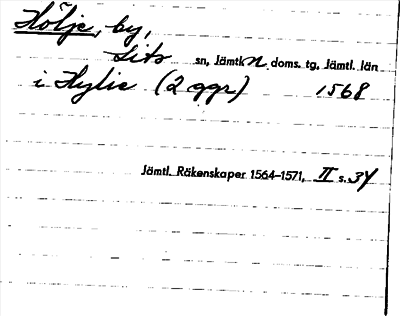 Hölje, by,
Lits sn, Jämtl. N. doms. tg, Jämtl. län
i Hylie (2 ggr) 1568
Jämtl. Räkenskaper 1564-1571, II s. 34